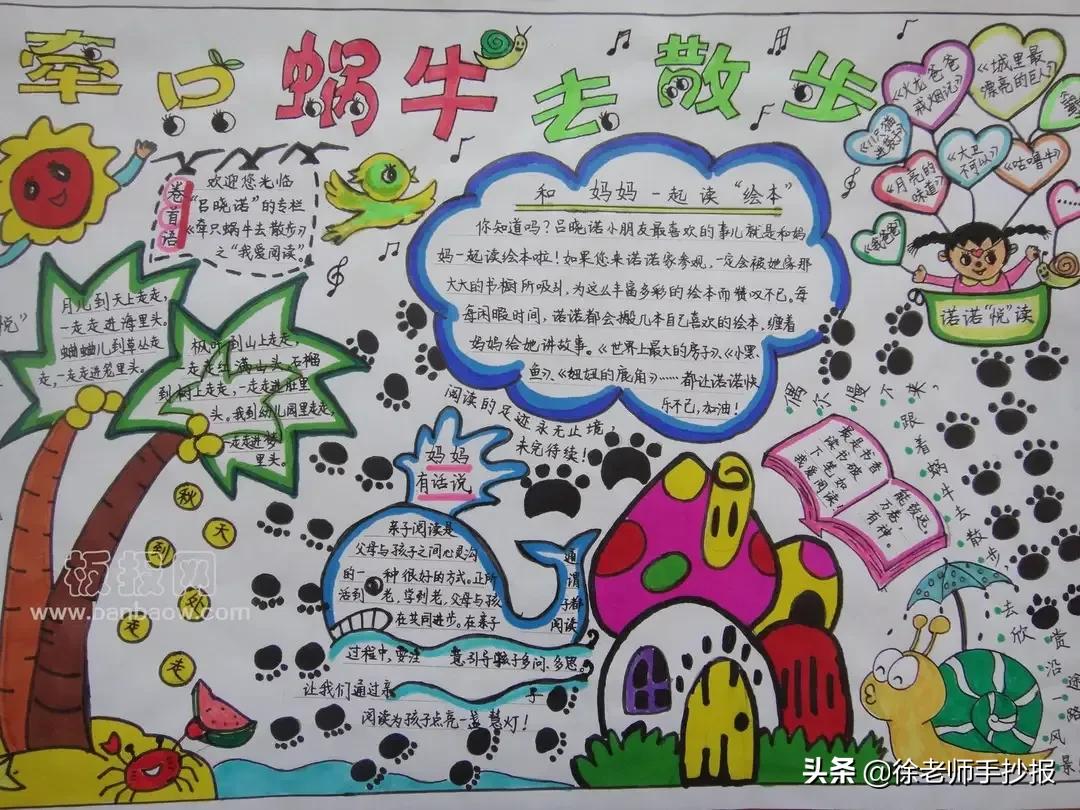 牵只蜗牛去散步
卷首语
欢迎您光临
“吕晓诺”的专栏
《牵只蜗牛去散步》
之“我爱阅读”。
和妈妈一起读“绘本”
你知道吗？吕晓诺小朋友最喜欢的事儿就是和妈
妈一起读绘本啦！如果您来诺诺家参观，一定会被她家那
大大的书橱所吸引，为这么丰富多彩的绘本而赞叹不已。每
每闲暇时间，诺诺都会搬几本自己喜欢的绘本，缠着
妈妈给她讲故事。《世界上最大的房子》、《小黑
鱼》、《妞妞的鹿角》……都让诺诺快
乐不已，加油！
《火龙爸爸
戒烟记》
《城里最
漂亮的巨人》
《月亮的
味道》
《大卫
不可以》
《咕噜牛》
《我爸爸》
……
诺诺“悦”读
悦”
月儿到天上走走，
一走走进海里头。
蝈蝈儿到草丛走
走，一走走进笼里头。
枫叶到山上走走，
一走走红满山头。石榴
到树上走走，一走走进肚里
头。我到幼儿园里走走，
一走走进梦
里头。
秋
天
到
走
走
阅读的足迹永无止境，
未完待续！
妈妈
有话说
亲子阅读是
父母与孩子之间心灵沟通
的一种很好的方式。正所谓
活到老，学到老，父母与孩子都
在共同进步。在亲子阅读
过程中，要注意引导孩子多问、多思。
让我们通过亲子
阅读为孩子点亮一盏慧灯！
最是书香能致远
读书破万卷
下笔如有神。
我爱阅读。
偶尔慢下来，跟着蜗牛去散步，去欣赏沿途一路风景！
板报网
www.banbaow.com
头条 @徐老师手抄报